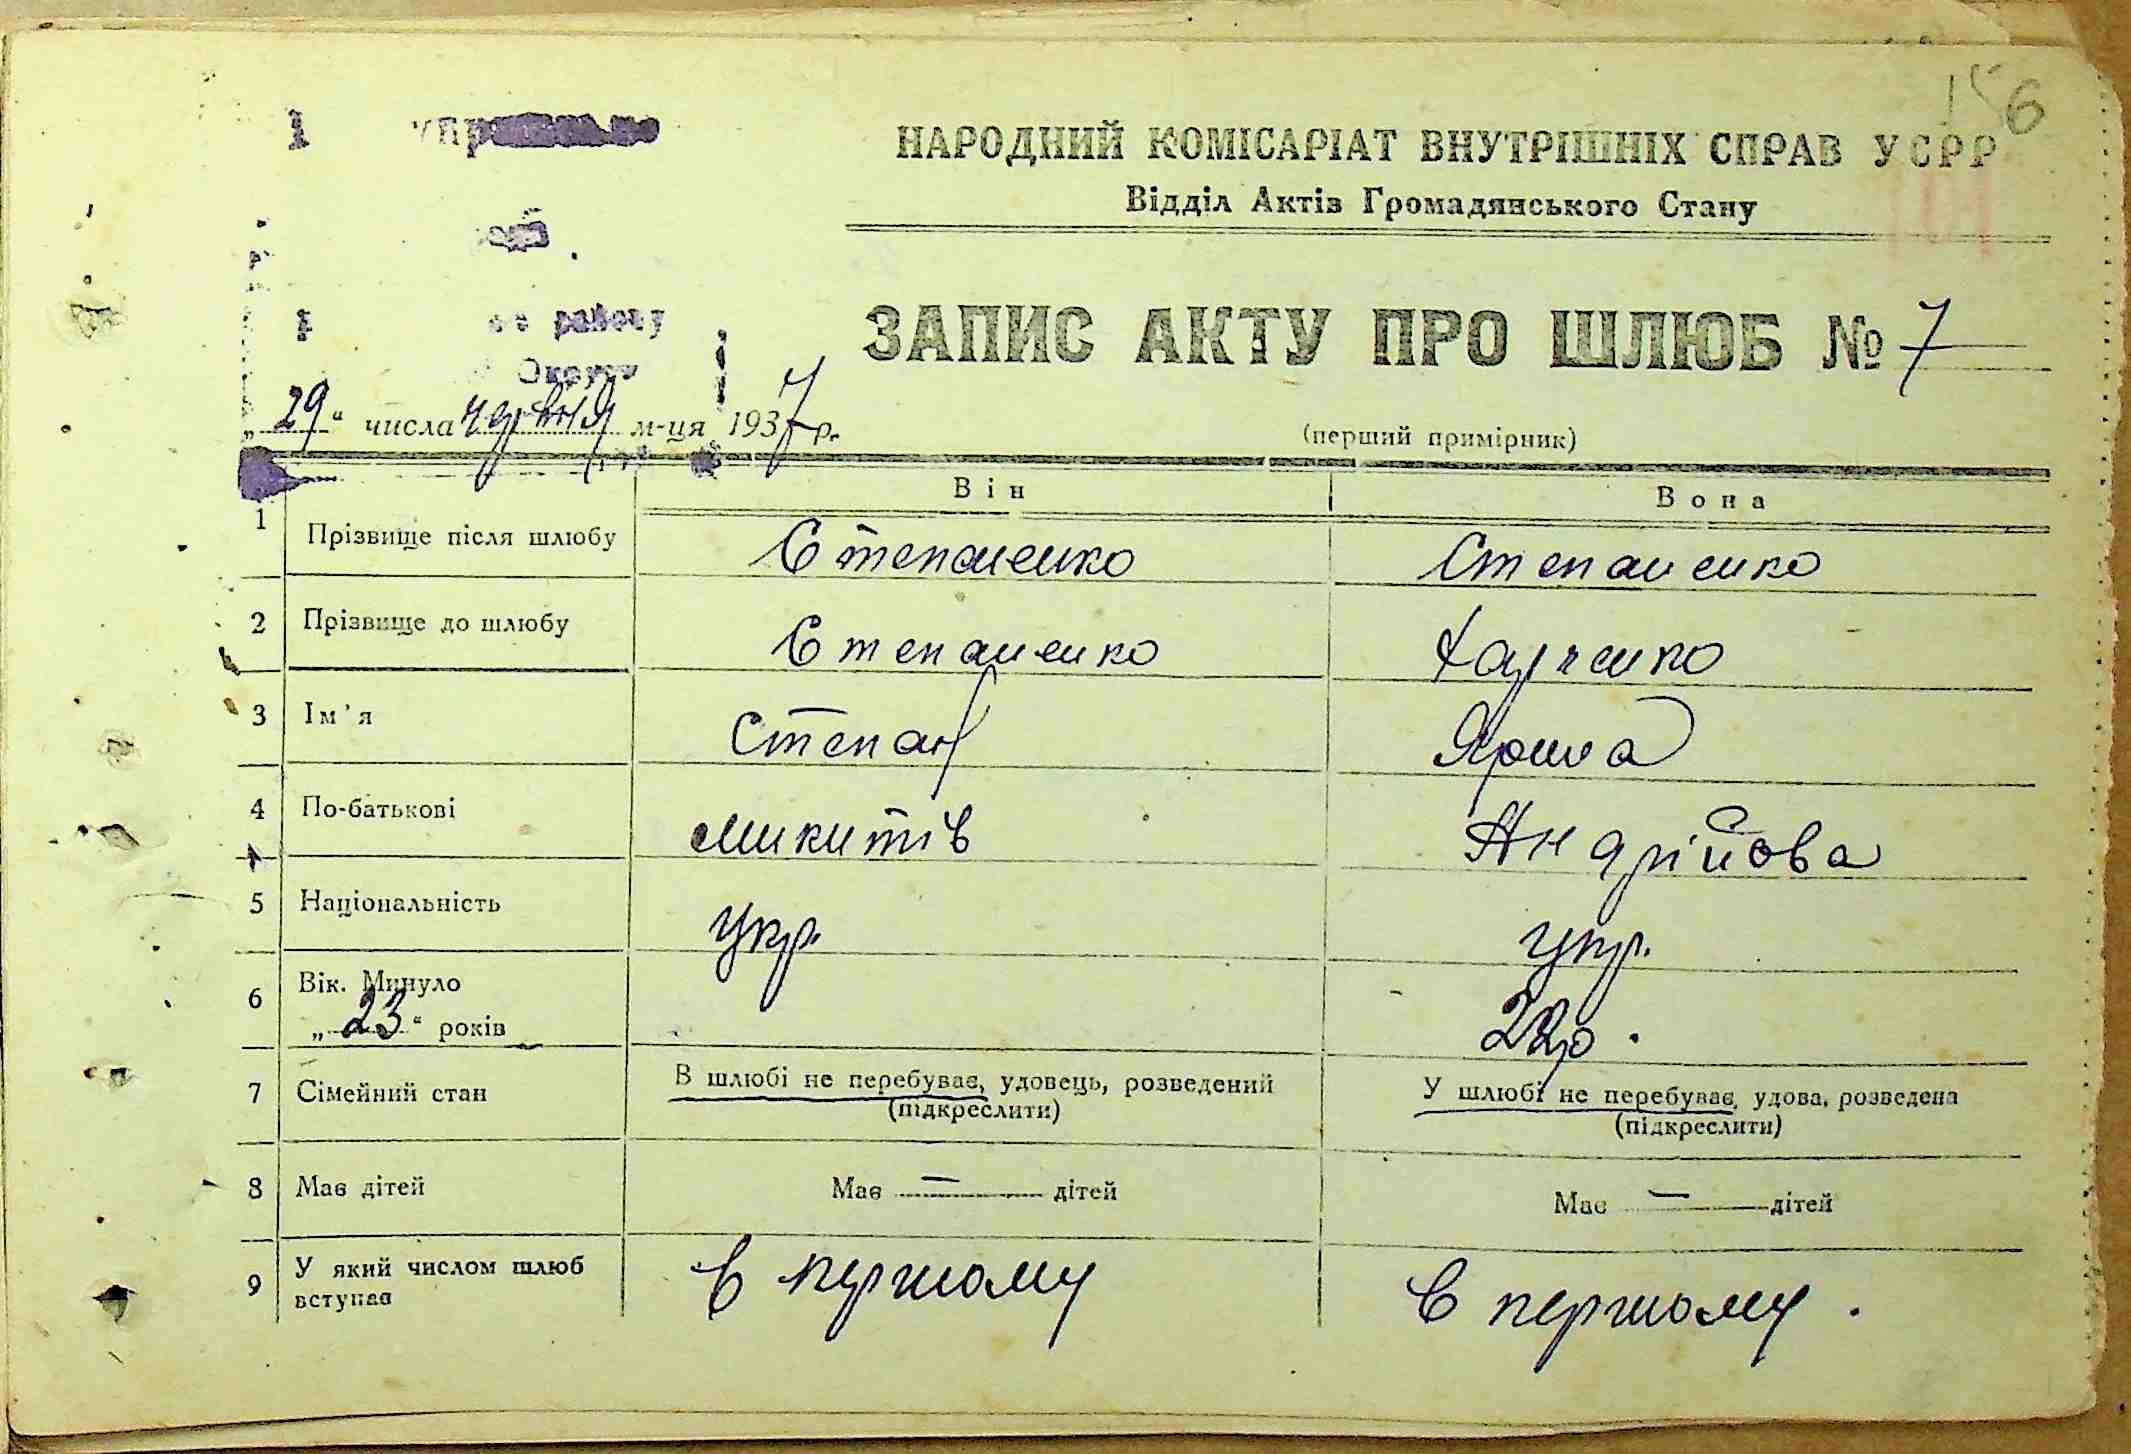 156
НАРОДНИЙ КОМІСАРІАТ ВНУТРІШНІХ СПРАВ УСРР
Відділ Актів Громадянського Стану
району
Округи
ЗАПИС АКТУ ПРО ШЛЮБ № 7
„29“ числа червня м-ця 1937 р.
(перший примірник)
Він Вона
1 Прізвище після шлюбу Степаненко Степаненко
2 Прізвище до шлюбу Степаненко Харченко
3 Ім'я Степан Ярина
4 По-батькові Микитів Андрійова
5 Національність укр. укр.
6 Вік. Минуло
„23“ років
7 Сімейний стан В шлюбі не перебуває, удовець, розведений У шлюбі не перебуває, удова, розведена
(підкреслити) (підкреслити)
8 Має дітей Має — дітей Має — дітей
9 У який числом шлюб
вступає В першому В першому.